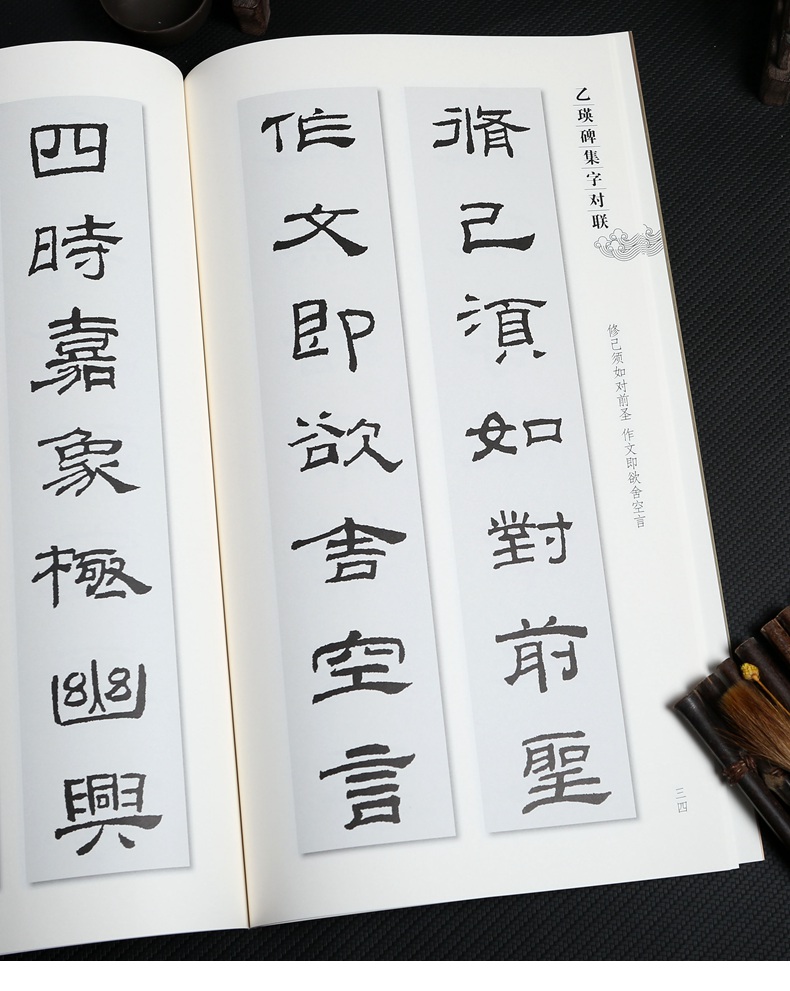 乙瑛碑集字对联
修己须如对前圣 作文即欲舍空言
脩己須如對前聖
作文即欲舍空言
三四
四時嘉象極幽興